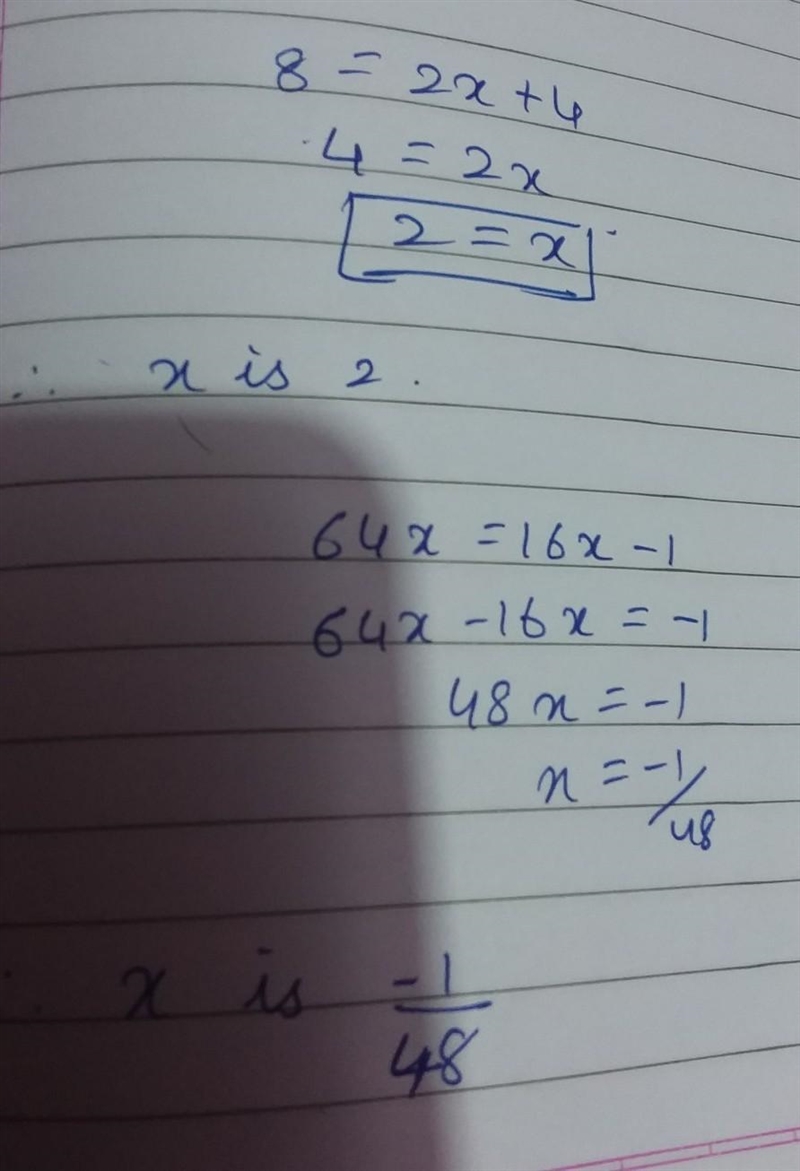 8 = 2x + 4
4 = 2x
2 = x
∴ x is 2.
64x = 16x - 1
64x - 16x = -1
48x = -1
x = -1/48
x is -1/48